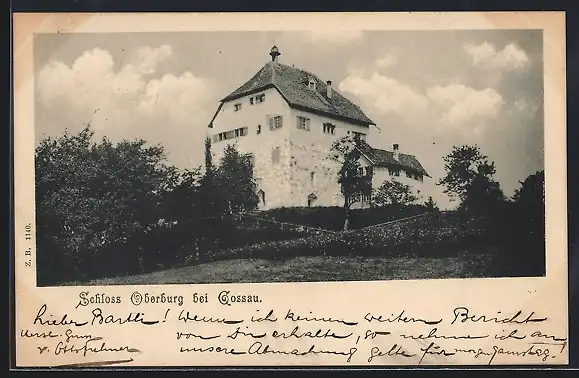 Z. B. 1140.
Schloss Oberburg bei Gossau.
Lieber Bartli! Wenn ich keinen weitern Bericht
von Dir erhalte, so nehme ich an
unsere Abmachung gelte für morgen
v. Otto